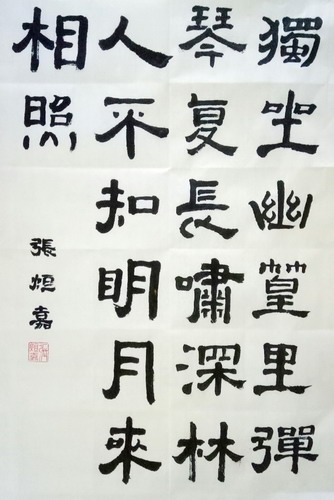 獨坐幽篁里彈
琴复長嘯深林
人不扣明月來
相照
張烜嘉